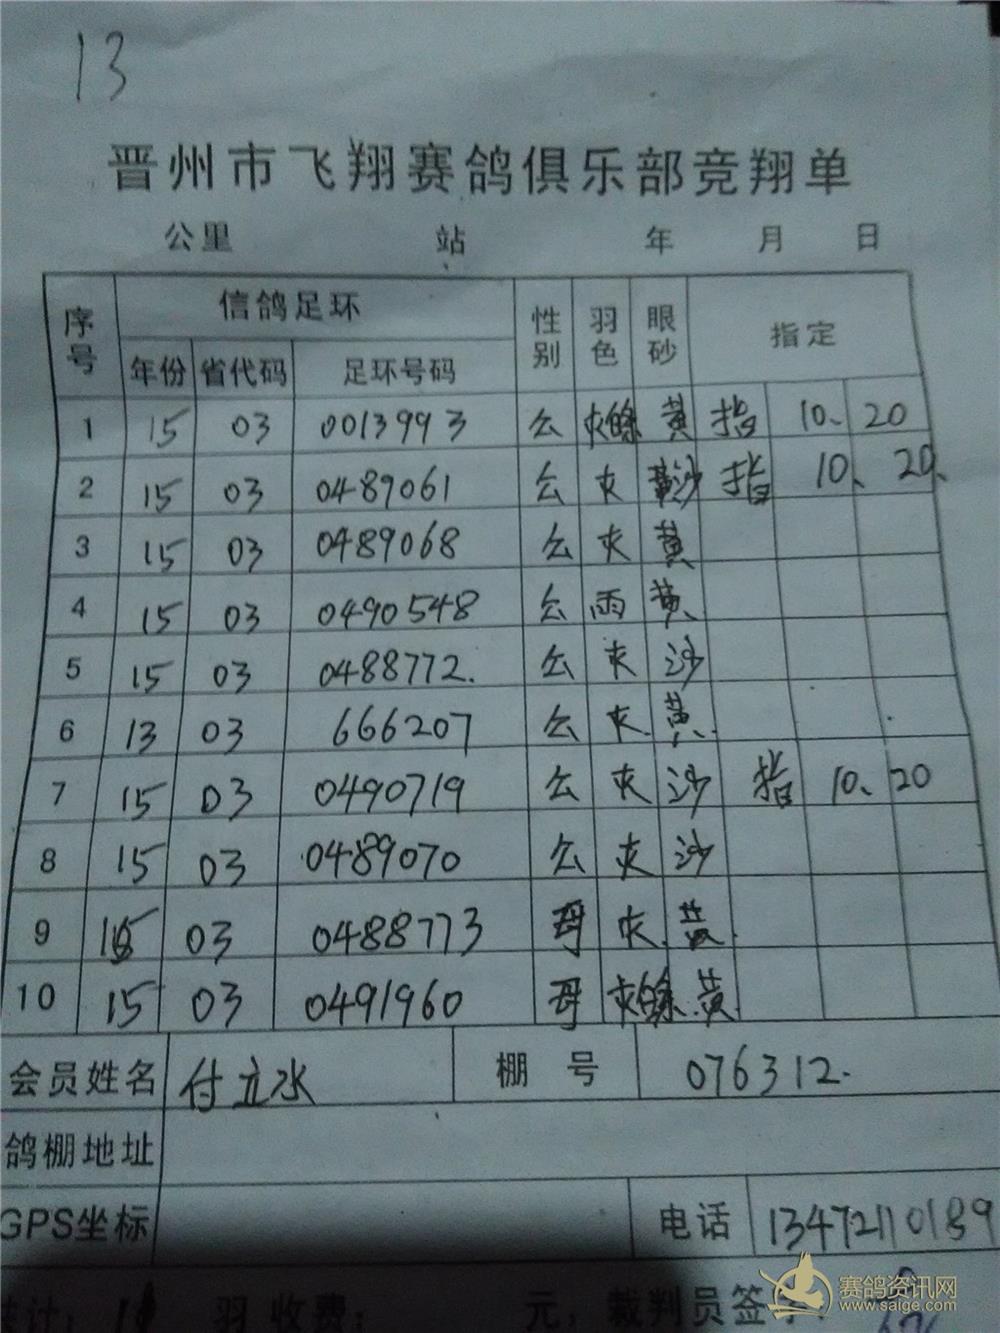 13
晋州市飞翔赛鸽俱乐部竞翔单
公里 站 年 月 日
序号 信鸽足环 性别 羽色 眼砂 指定
年份 省代码 足环号码
1 15 03 0013993 公 灰 黄 指 10、20
2 15 03 0489061 公 灰 黄沙 指 10、20、
3 15 03 0489068 公 灰 黄
4 15 03 0490548 公 雨 黄
5 15 03 0488772. 公 灰 沙
6 13 03 666207 公 灰 黄
7 15 03 0490719 公 灰 沙 指 10、20
8 15 03 0489070 公 灰 沙
9 15 03 0488773 母 灰 黄
10 15 03 0491960 母 灰 黄
会员姓名 付立水 棚号 076312.
鸽棚地址
GPS坐标 电话 13472110189
计: 羽 收费: 元, 裁判员签字:
赛鸽资讯网
www.saige.com